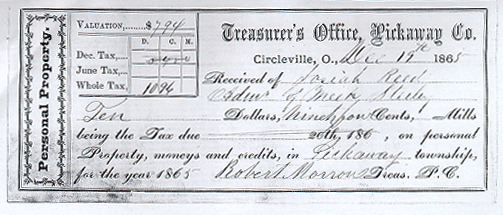 Personal Property.
VALUATION, $794
D. C. M.
Dec. Tax,
June Tax,
Whole Tax, 1096
Treasurer's Office, Pickaway Co.
Circleville, O., Dec 19th 1865
Received of Josiah Reed
Admr of
Ten Dollars, Ninety Cents, Mills
being the Tax due 20th, 186 , on personal
Property, moneys and credits, in Pickaway township,
for the year 1865 Robert Morrow Treas. P. C.